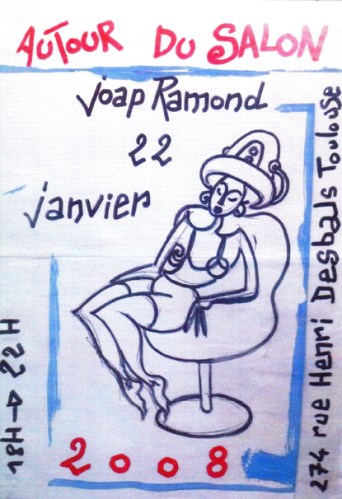 AUTOUR DU SALON
Joap Ramond
22
janvier
18H → 22H
274 rue Henri Desbals Toulouse
2008